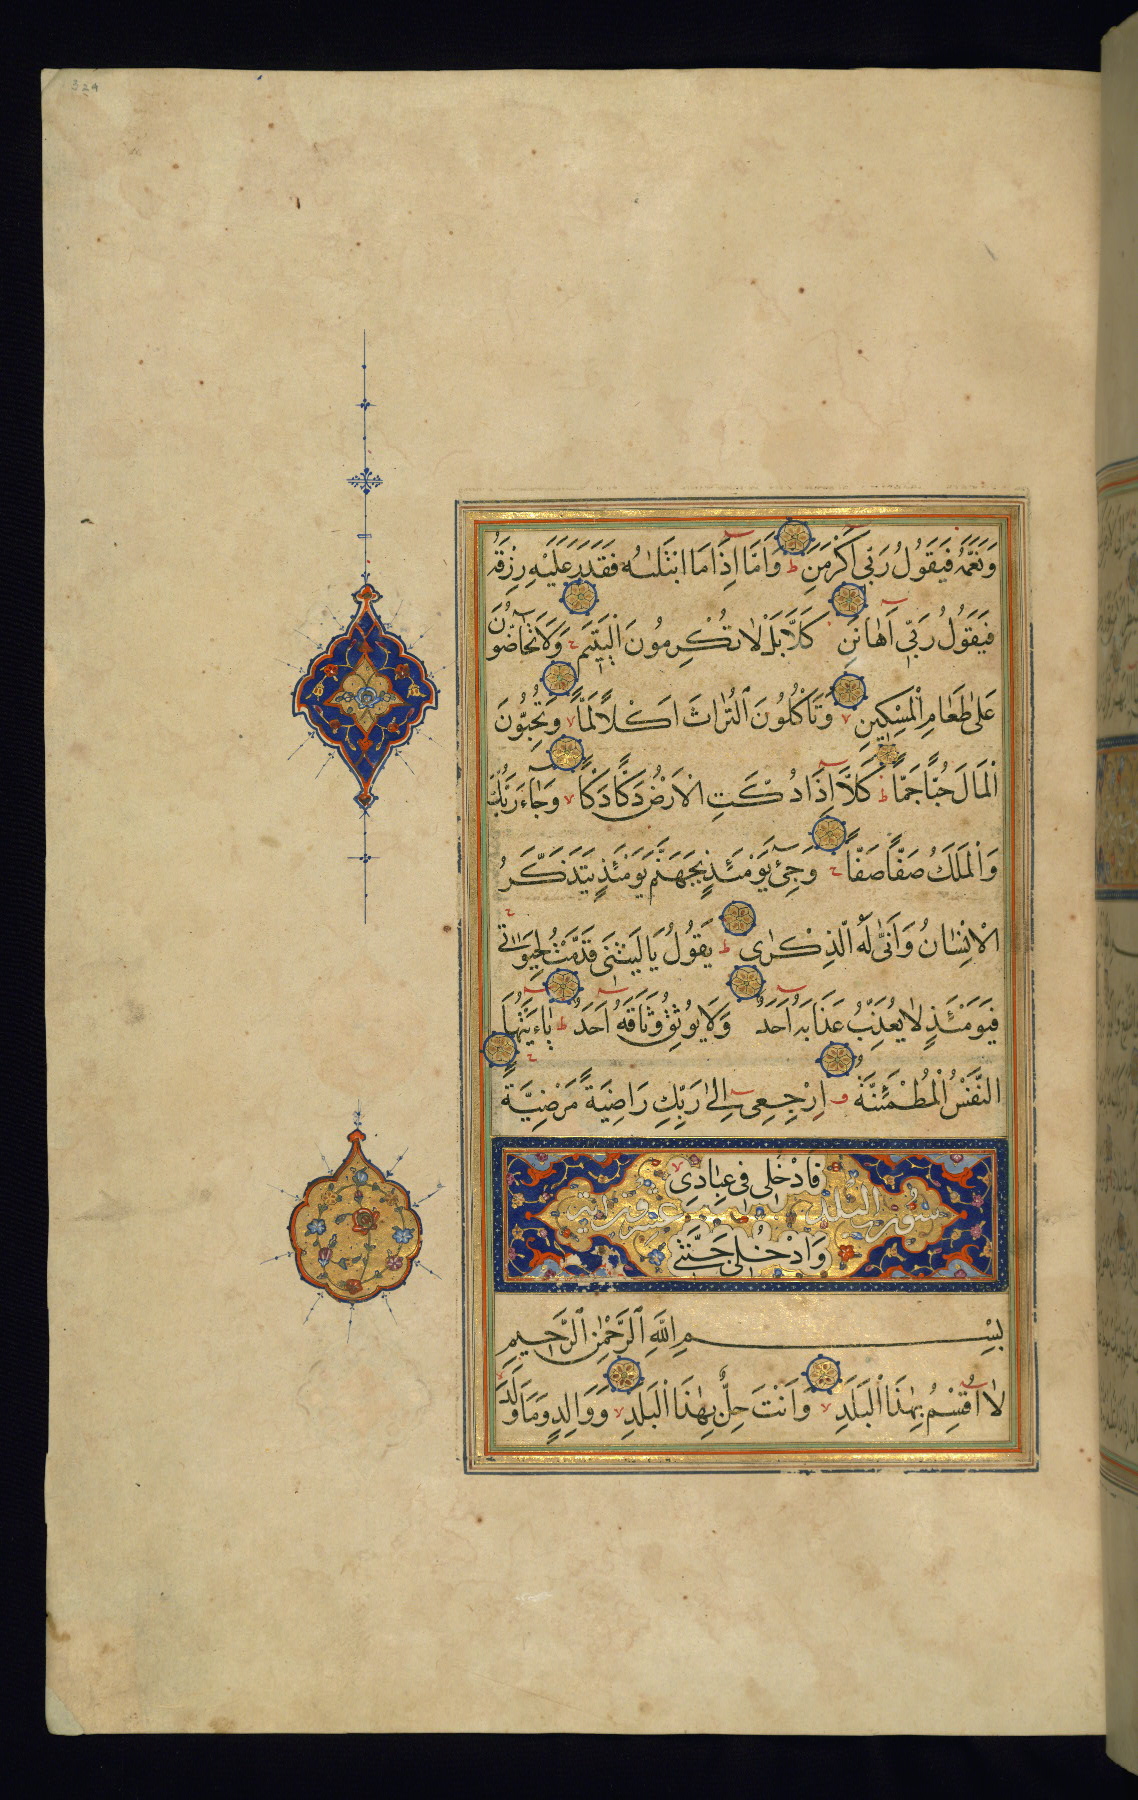 324
وَنَعَّمَهُ فَيَقُولُ رَبِّي أَكْرَمَنِ ط وَأَمَّا إِذَا مَا ابْتَلٰىهُ فَقَدَرَ عَلَيْهِ رِزْقَهُ
فَيَقُولُ رَبِّي أَهَانَنِ كَلَّا بَلْ لَا تُكْرِمُونَ الْيَتِيمَ لا وَلَا تَحَاضُّونَ
عَلٰى طَعَامِ الْمِسْكِينِ لا وَتَأْكُلُونَ التُّرَاثَ أَكْلًا لَمًّا لا وَتُحِبُّونَ
الْمَالَ حُبًّا جَمًّا ط كَلَّا إِذَا دُكَّتِ الْأَرْضُ دَكًّا دَكًّا لا وَجَاءَ رَبُّكَ
وَالْمَلَكُ صَفًّا صَفًّا ج وَجِيءَ يَوْمَئِذٍ بِجَهَنَّمَ يَوْمَئِذٍ يَتَذَكَّرُ
الْإِنْسَانُ وَأَنّٰى لَهُ الذِّكْرٰى ط يَقُولُ يَا لَيْتَنِي قَدَّمْتُ لِحَيَوَاتِي
فَيَوْمَئِذٍ لَا يُعَذِّبُ عَذَابَهُ أَحَدٌ وَلَا يُوثِقُ وَثَاقَهُ أَحَدٌ ط يَا أَيَّتُهَا
النَّفْسُ الْمُطْمَئِنَّةُ ارْجِعِي إِلٰى رَبِّكِ رَاضِيَةً مَرْضِيَّةً
فَادْخُلِي فِي عِبَادِي لا
سورة البلد عشرون اية
وَادْخُلِي جَنَّتِي
بِسْمِ اللّٰهِ الرَّحْمٰنِ الرَّحِيمِ
لَا أُقْسِمُ بِهٰذَا الْبَلَدِ لا وَأَنْتَ حِلٌّ بِهٰذَا الْبَلَدِ لا وَوَالِدٍ وَمَا وَلَدَ لا